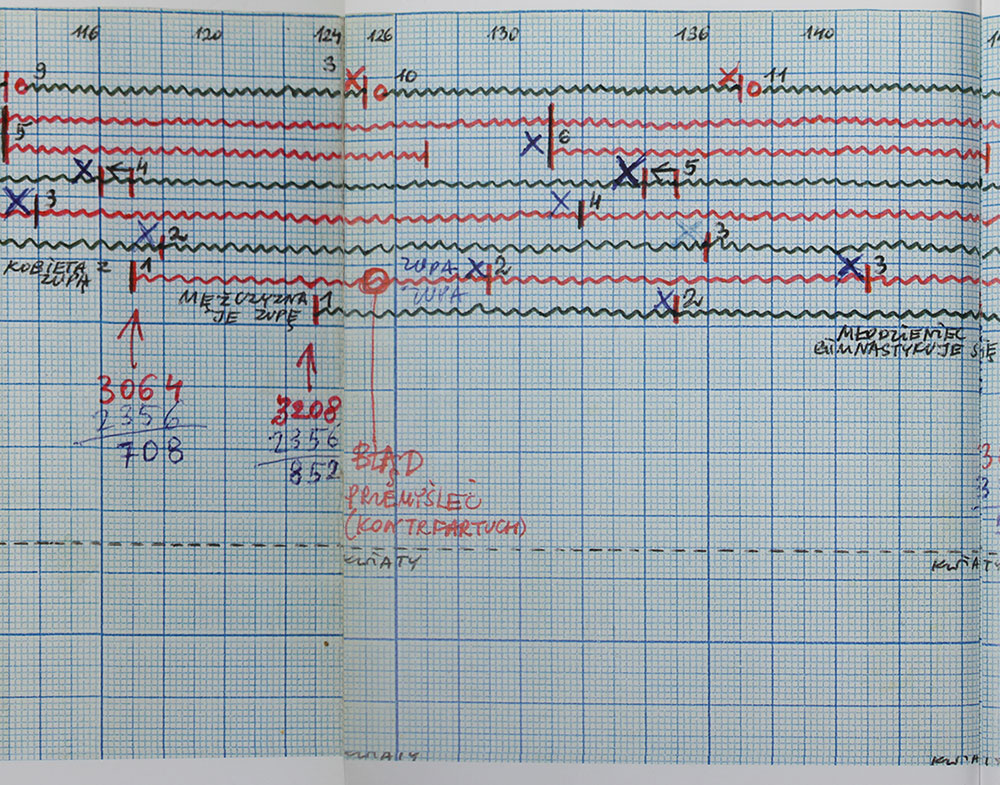 116 120 124 126 130 136 140
3
9 10 11
5 6
4 5
3 4
2 3
KOBIETA Z
ZUPĄ
1 ZUPA 2 3
ZUPA
MĘŻCZYZNA
JE ZUPĘ
1 2
MŁODZIENIEC
GIMNASTYKUJE SIĘ
3064
2356
708
3208
2356
852
BŁĄD
PRZEMYŚLEĆ
(KONTRFARTUCH)
KWIATY KWIATY
KWIATY KWIATY